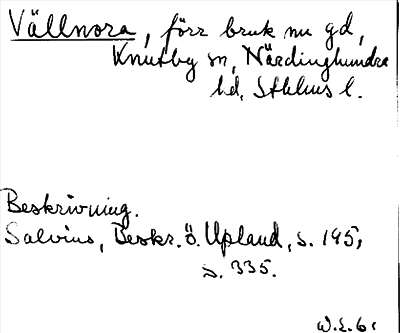 Vällnora, förr bruk nu gd,
Knutby sn, Närdinghundra
hd, Sthlms l.
Beskrivning.
Salvius, Beskr. ö. Upland, s. 195,
s. 335.
W.L.6.